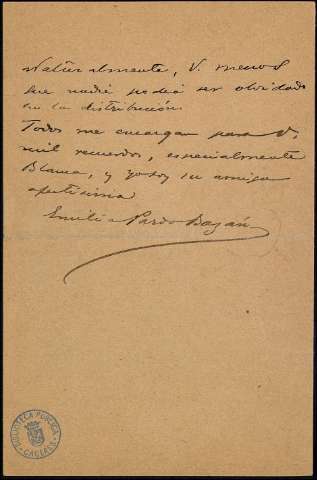 Naturalmente, V. menos
que nadie podia ser olvidado
en la distribución.
Todos me encargan para V.
mil recuerdos, especialmente
Blanca, y yo soy su amiga
afectísima
Emilia Pardo Bazán
BIBLIOTECA PUBLICA
CACERES